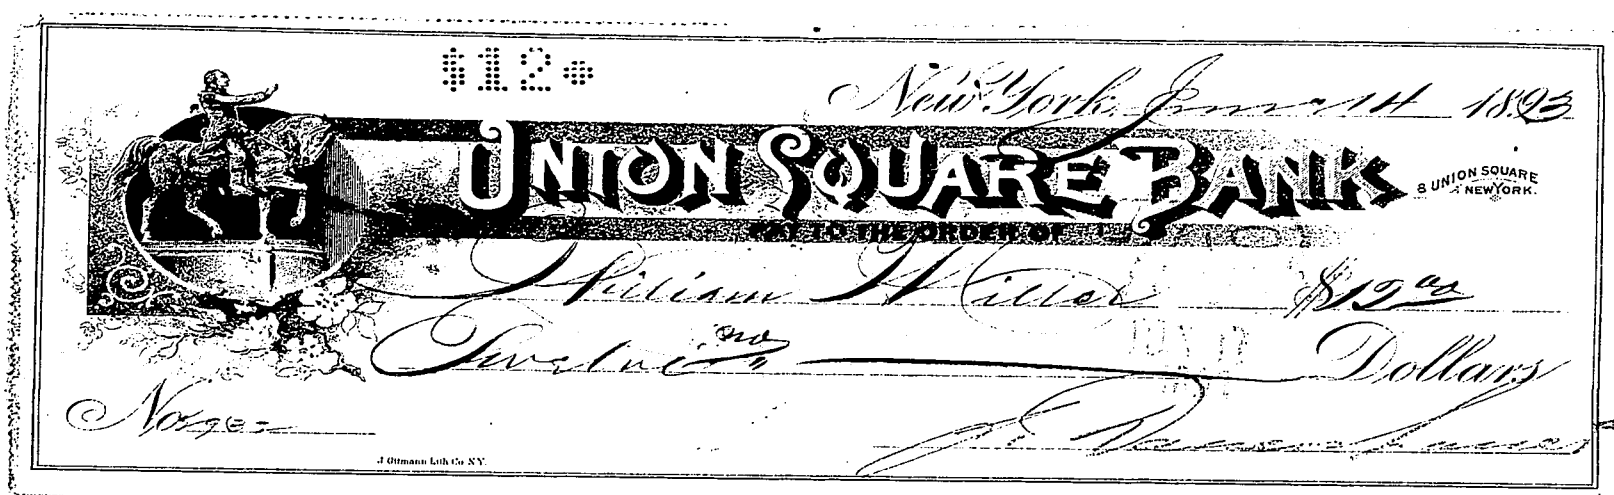 $12
New York, June 14 1893
UNION SQUARE BANK
8 UNION SQUARE
NEW YORK.
PAY TO THE ORDER OF
William Miller $12 00
Twelve no Dollars
No
J. Ottmann Lith Co NY.